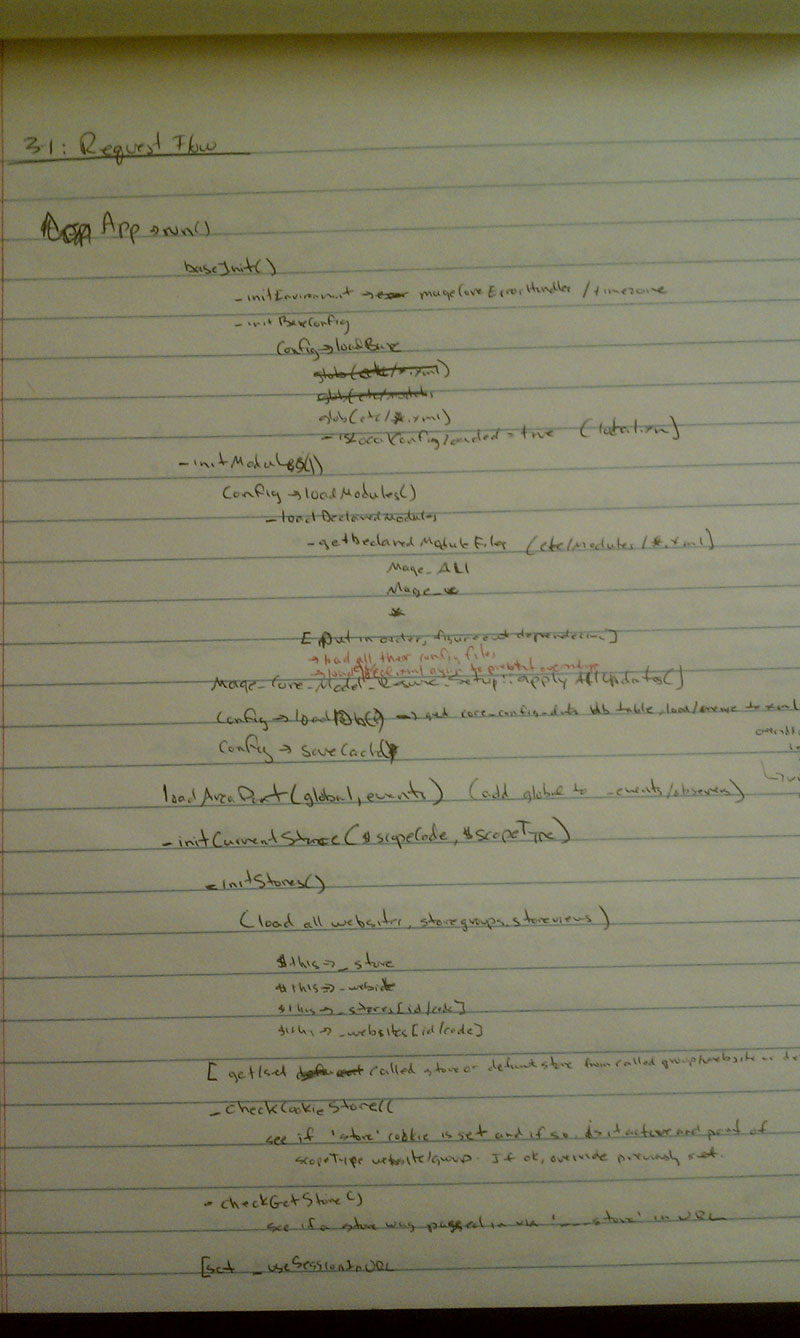 3.1: Request Flow
App App→run()
baseInit()
- initEnvironment → mageCoreErrorHandler / timezone
- initBaseConfig
Config→loadBase
glob(etc/*.xml)
glob(etc/modules
glob(etc/*.xml)
- isLocalConfigLoaded = true (local.xml)
- initModules()
Config→loadModules()
- loadDeclaredModules
- getDeclaredModuleFiles (etc/modules/*.xml)
Mage_All
Mage_*
*
[put in order, figure out dependencies]
→ load all their config files
→ load local.xml again to prevent override
Mage_Core_Model_Resource_Setup::applyAllUpdates()
Config→loadDb() → get core_config_data db table, load/merge to xml
Config→saveCache()
loadAreaPart(global, events) (add global to _events/observers)
- initCurrentStore($scopeCode, $scopeType)
- initStores()
(load all websites, storegroups, storeviews)
$this→_store
$this→_website
$this→_stores[id/code]
$this→_websites[id/code]
[get/set called store or default store from called group/website or de
_checkCookieStore(
see if 'store' cookie is set and if so, is it active and part of
scopeType website/group. If ok, override previously set.
- checkGetStore()
see if a store was passed in via '___store' in URL
[set _useSessionInURL